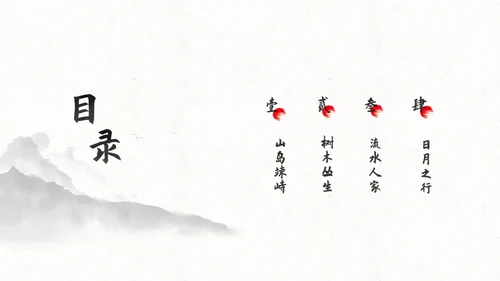 目录
壹
山岛竦峙
贰
树木丛生
叁
流水人家
肆
日月之行